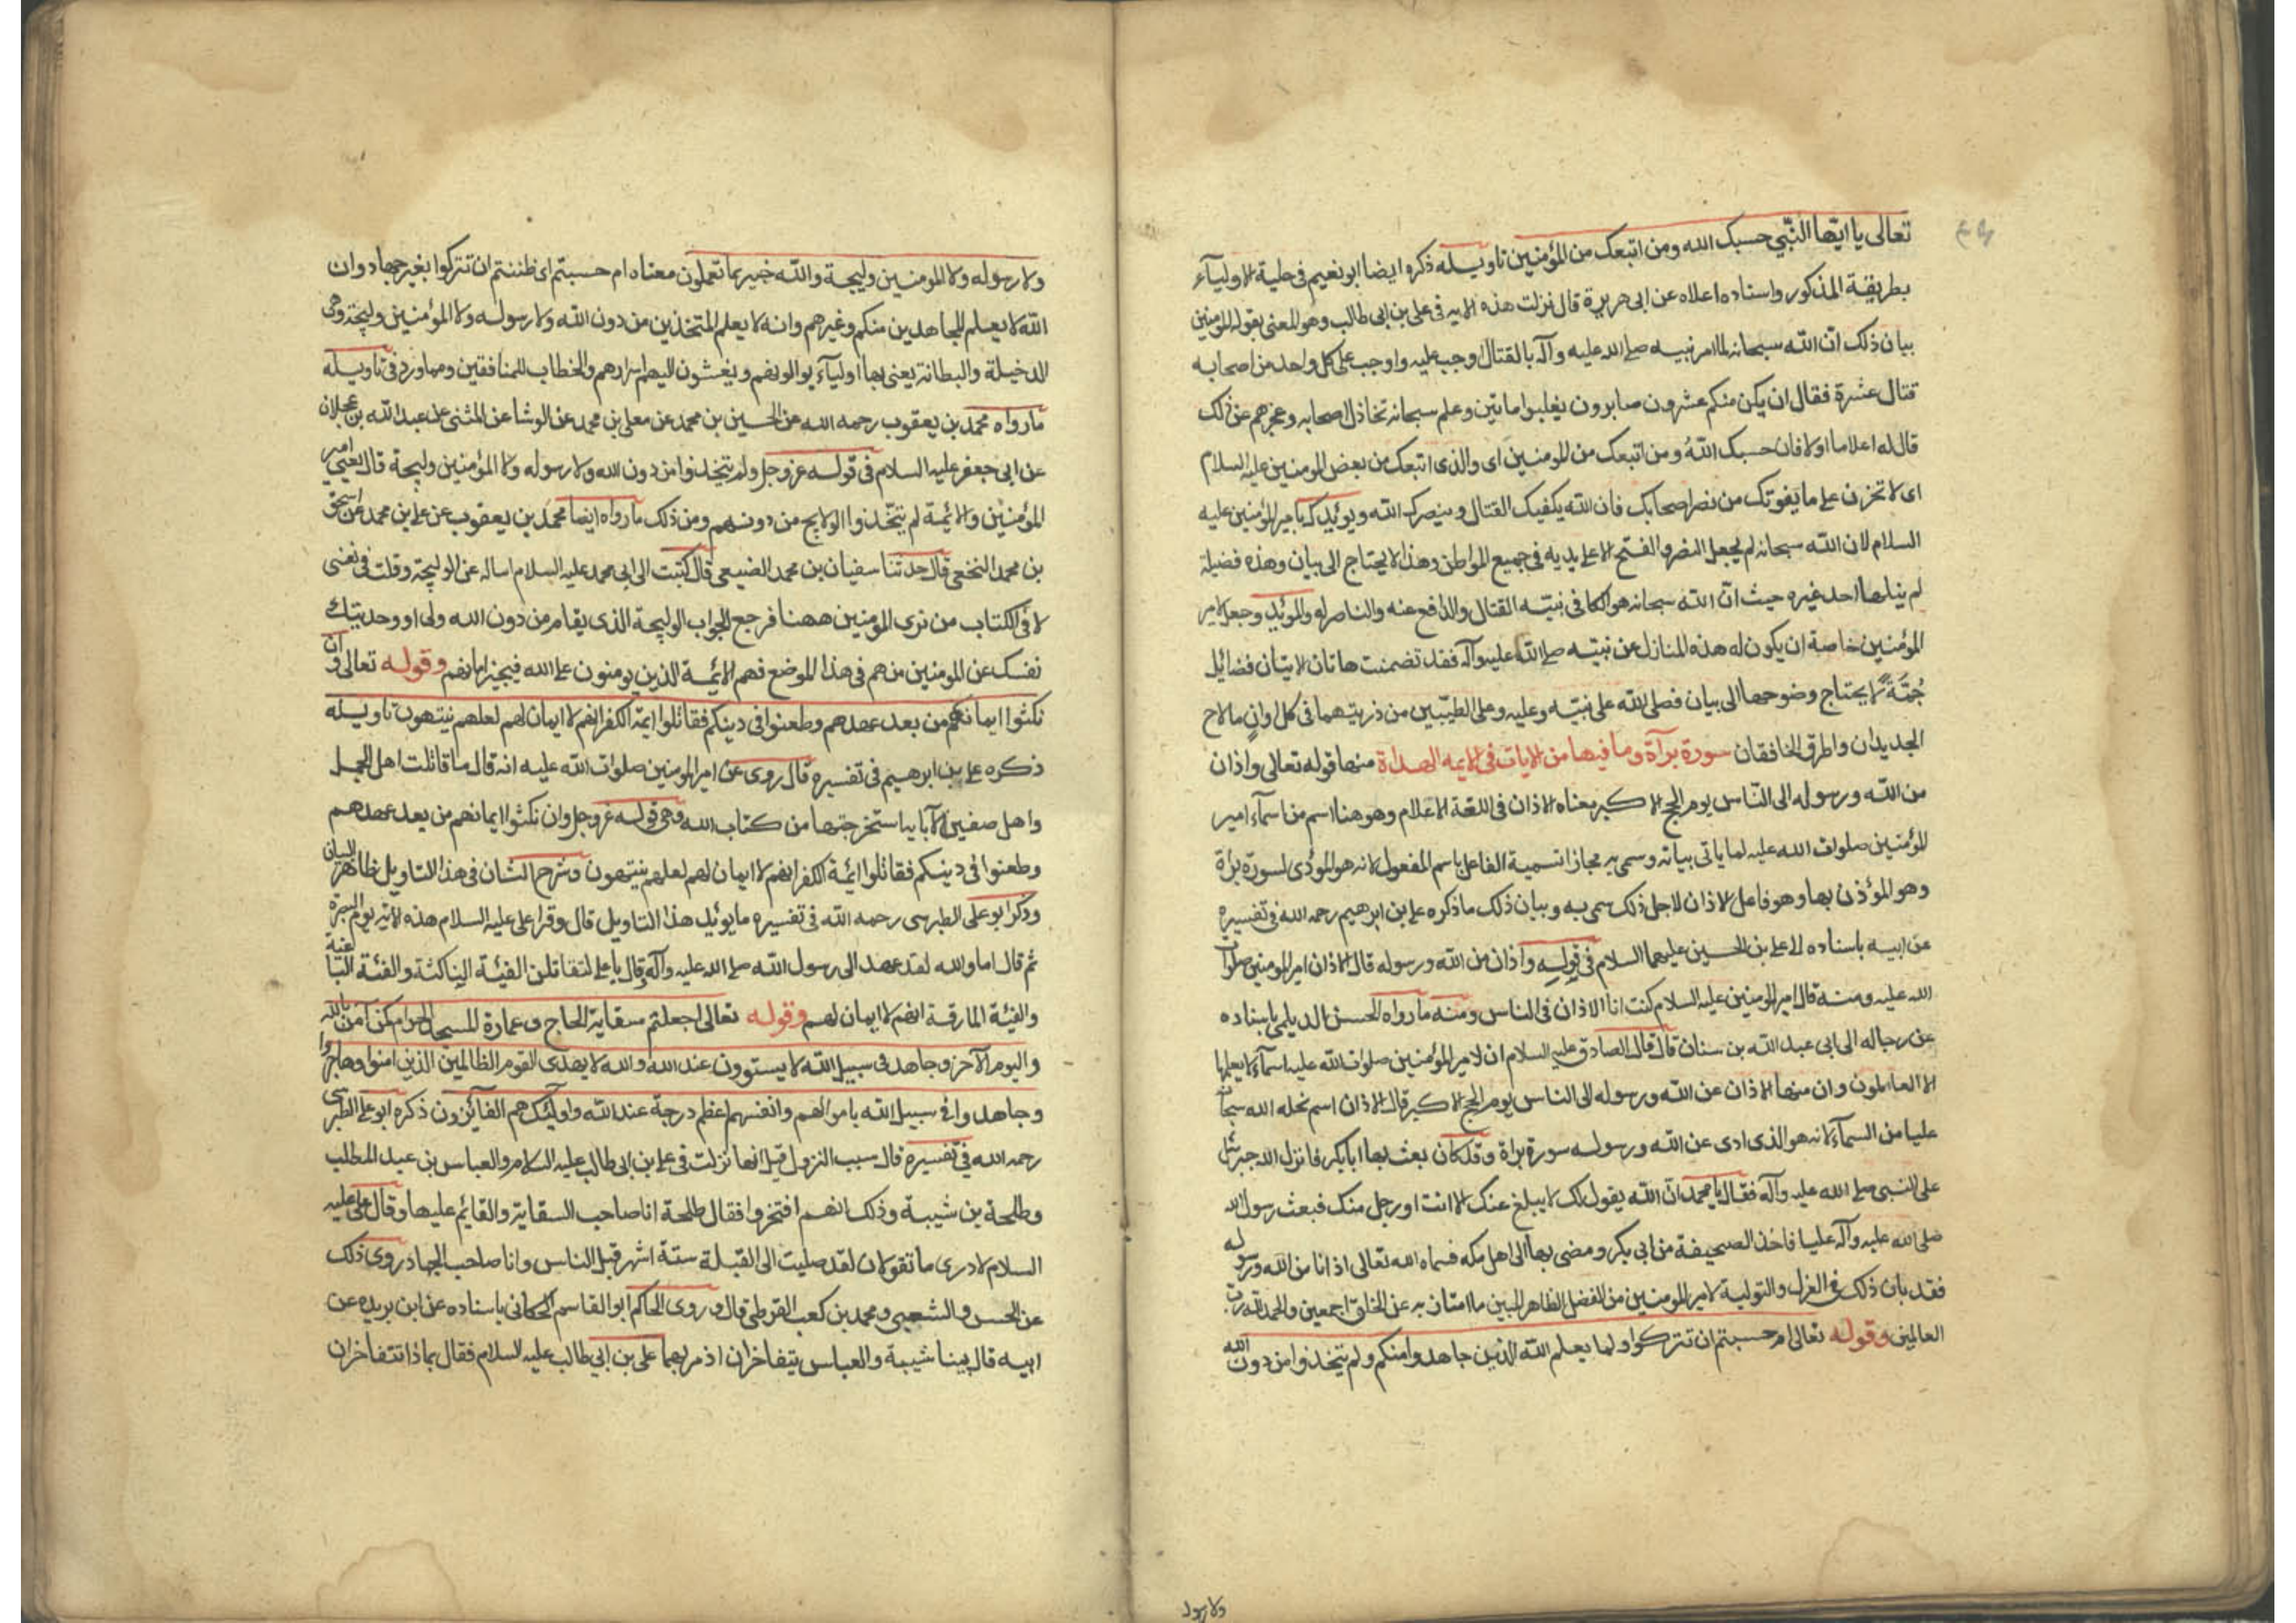 تعالى يا ايّها النّبي حسبك الله ومن اتبعك من المؤمنين تاويله ذكره ايضا ابو نعيم فى حلية الاوليآء
بطريقة المذكور واسناده اعلاه عن ابى هريرة قال نزلت هذه الايه فى على بن ابى طالب وهو المعنى بقوله المومنين
بيان ذلك انّ الله سبحانه لما امر نبيه صلى الله عليه وآله بالقتال اوجب عليه واوجب على كل واحد من اصحابه
قتال عشرة فقال ان يكن منكم عشرون صابرون يغلبوا مايتين وعلم سبحانه تخاذل الصحابه وعجزهم عن ذلك
قال له اعلاما اولا فان حسبك اللهُ ومن اتبعك من المومنين اى والذى اتبعك من بعض المومنين عليه السلام
اى لا تحزن على ما يفوتك من نصر اصحابك فان الله يكفيك القتال وينصرك الله ويوئيدك بامير المؤمنين عليه
السلام لان الله سبحانه لم يجعل النصر والفتح الا على يديه فى جميع المواطن وهذا لا يحتاج الى بيان وهذه فضيلة
لم ينلها احد غيره حيث انّ الله سبحانه هو الكافى نبيّه القتال والدافع عنه والناصر له والموئيد وجعل لامير
المؤمنين خاصة ان يكون له هذه المنازل عن نبيّه صلى الله عليه وآله فقد تضمنت هاتان الايتان فضائل
جُمَّةً لا يحتاج وضوحها الى بيان فصلى الله على نبيّه وعليه وعلى الطيّبين من ذريتهما فى كل اوان ما لاح
الجديدان واطرق الخافقان سورة برآة وما فيها من الايات فى الايمه الهداة منها قوله تعالى واذان
من الله ورسوله الى النّاس يوم الحج الاكبر معناه الاذان فى اللغة الاعلام وهو هنا اسم من اسمآء امير
المؤمنين صلوات الله عليه لما ياتى بيانه وسمى به مجازا تسمية الفاعل باسم المفعول لانه هو المؤدى لسورة براة
وهو المؤذن بها وهو فاعل الاذان لاجل ذلك سمى به وبيان ذلك ما ذكره على بن ابرهيم رحمه الله فى تفسيره
عن ابيه باسناده الى على بن الحسين عليهما السلام فى قوله واذان من الله ورسوله قال الاذان امير المومنين صلوات
الله عليه ومنه قال امير المومنين عليه السلام كنت انا الاذان فى الناس ومنه ما رواه الحسن الديلمى باسناده
عن رجاله الى ابى عبد الله بن سنان قال قال الصادق عليه السلام ان لامير المؤمنين صلوات الله عليه اسمآء لا يعلمها
الا العالمون وان منها الاذان عن الله ورسوله الى الناس يوم الحج الاكبر قال الاذان اسم نحله الله سبحانه
عليا من السمآء لانه هو الذى ادى عن الله ورسوله سورة براة وقد كان بعث بها ابا بكر فانزل الله جبرئيل
على النبى صلى الله عليه وآله فقال يا محمد انّ الله يقول لك لا يبلغ عنك الا انت او رجل منك فبعث رسول الله
صلى الله عليه وآله عليا فاخذ الصحيفة من ابى بكر ومضى بها الى اهل مكه فسماه الله تعالى اذانا من الله ورسوله
فقد بان ذلك فى العزل والتولية لامير المومنين من الفضل الظاهر المبين ما امتان به عن الخلق اجمعين والحمد لله رب
العالمين وقوله تعالى ام حسبتم ان تتركوا ولما يعلم الله الذين جاهدوا منكم ولم يتخذوا من دون الله
ولا رسول
ولا رسوله ولا المومنين وليجة والله خبير بما تعملون معناه ام حسبتم اى ظننتم ان تتركوا بغير جهاد وان
الله لا يعلم المجاهدين منكم وغيرهم وانه لا يعلم المتخذين من دون الله ولا رسوله ولا المؤمنين وليجة وهى
الدخيلة والبطانة يعنى بها اوليآء يوالونهم ويفشون اليهم اسرارهم والخطاب للمنافقين ومما ورد فى تاويله
ما رواه محمد بن يعقوب رحمه الله عن الحسين بن محمد عن معلى بن محمد عن الوشا عن المثنى عن عبد الله بن عجلان
عن ابى جعفر عليه السلام فى قوله عز وجل ولم يتخذوا من دون الله ولا رسوله ولا المؤمنين وليجة قال يعنى امير
المؤمنين والائمية لم يتّخذوا الولايج من دونهم ومن ذلك ما رواه ايضا محمد بن يعقوب عن على بن محمد عن اسحق
بن محمد النخعى قال حدثنا سفيان بن محمد الضبيعى قال كتبت الى ابى محمد عليه السلام اساله عن الوليجة وقلت فى نفسى
لا فى الكتاب من ترى المومنين ههنا فرجع الجواب الوليجة الذى يقام من دون الله ولى او وحديتك
نفسك عن المومنين من هم فى هذا الموضع فهم الائيمة الذين يومنون على الله فيجيز امانهم وقوله تعالى وان
نكثوا ايمانهم من بعد عهدهم وطعنوا فى دينكم فقاتلوا ايمة الكفر انهم لا ايمان لهم لعلهم ينتهون تاويله
ذكره على بن ابرهيم فى تفسيره قال روى عن امير المومنين صلوات الله عليه انه قال ما قاتلت اهل الجمل
واهل صفين الا باية استخرجتها من كتاب الله وهى قوله عز وجل وان نكثوا ايمانهم من بعد عهدهم
وطعنوا فى دينكم فقاتلوا ايئمة الكفر انهم لا ايمان لهم لعلهم ينتهون وشرح الشان فى هذا التاويل ظاهر البيان
وذكر ابو على الطبرسى رحمه الله فى تفسيره ما يوئيد هذا التاويل قال وقرا على عليه السلام هذه الاية يوم البصرة
ثم قال اما والله لقد عهد الى رسول الله صلى الله عليه وآله وقال يا على لتقاتلن الفيئة الناكثة والفئة الباغية
والفيئة المارقة انهم لا ايمان لهم وقوله تعالى اجعلتم سقاية الحاج وعمارة المسجد الحرام كمن آمن بالله
واليوم الآخر وجاهد فى سبيل الله لا يستوون عند الله والله لا يهدى القوم الظالمين الذين امنوا وهاجروا
وجاهدوا فى سبيل الله باموالهم وانفسهم اعظم درجة عند الله واولئك هم الفائزون ذكره ابو على الطبرسى
رحمه الله فى تفسيره قال سبب النزول قيل انها نزلت فى على بن ابى طالب عليه السلام والعباس بن عبد المطلب
وطلحة بن شيبة وذلك انهم افتخروا فقال طلحة انا صاحب السقاية والقائيم عليها وقال على عليه
السلام لا درى ما تقولان لقد صليت الى القبلة ستة اشهر قبل الناس وانا صاحب الجهاد روى ذلك
عن الحسن والشعبى ومحمد بن كعب القرطى قال وروى الحاكم ابو القاسم الحسكانى باسناده عن ابن بريده عن
ابيه قال بينا شيبة والعباس يتفاخران اذ مر بهما على بن ابى طالب عليه السلام فقال بماذا تتفاخران